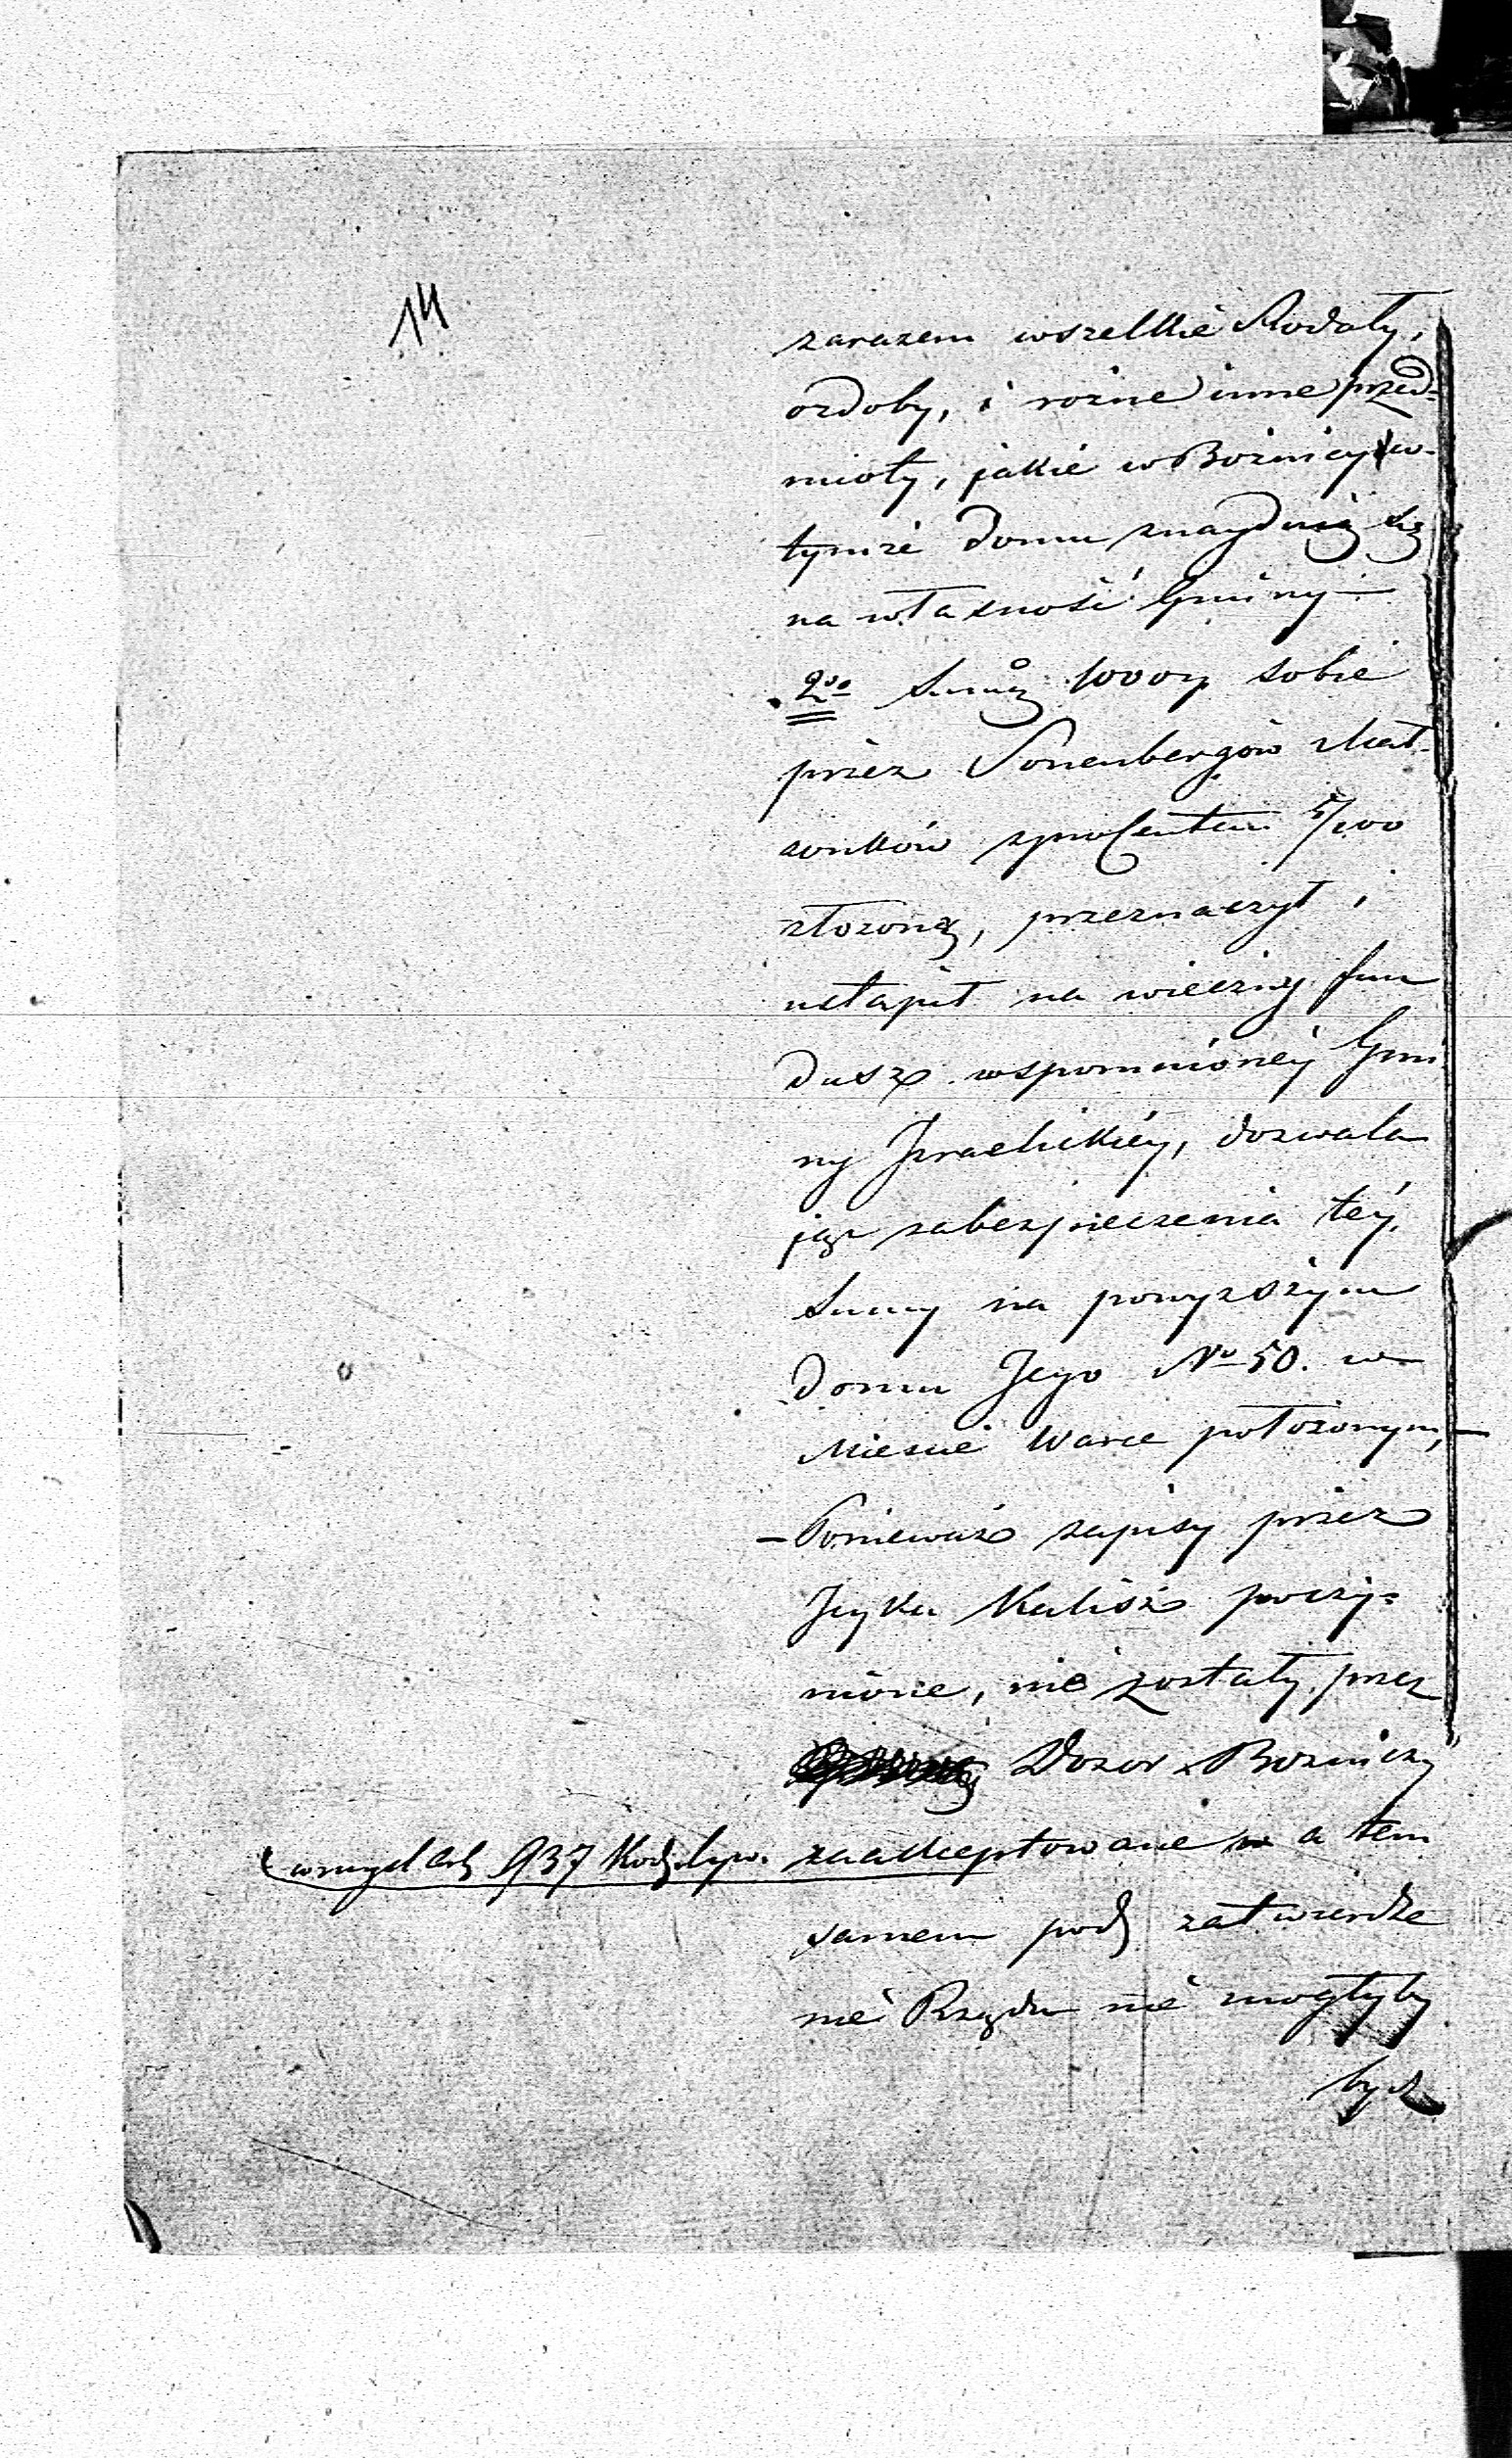 14
zarazem wszelkie Rodały,
ozdoby, i rożne inne przed-
mioty, jakie w Bożnicy w-
tymże domu znayduią się
na własność Gminy —
2do Summę 1000 sobie
przez Sonenbergów Mał-
żonków z procentem 5/100
złożoną, przeznaczył i
ustąpił na wieczny fun
dusz wspomnionéy Gmi
ny Izraelickiéy, dozwala
jąc zabezpieczenia téy
Summy na powyższym
domu Jego No 50. w
Mieście Warce położonym, —
— Ponieważ zapisy przez
Icyka Kalisz poczy=
nione, nie zostały przez
Dozor Bożniczy
w myśl Art 937 Kod. Cyw. zaakceptowane a tem
samem pod zatwierdze
nie Rządu nie mogłyby
bydź